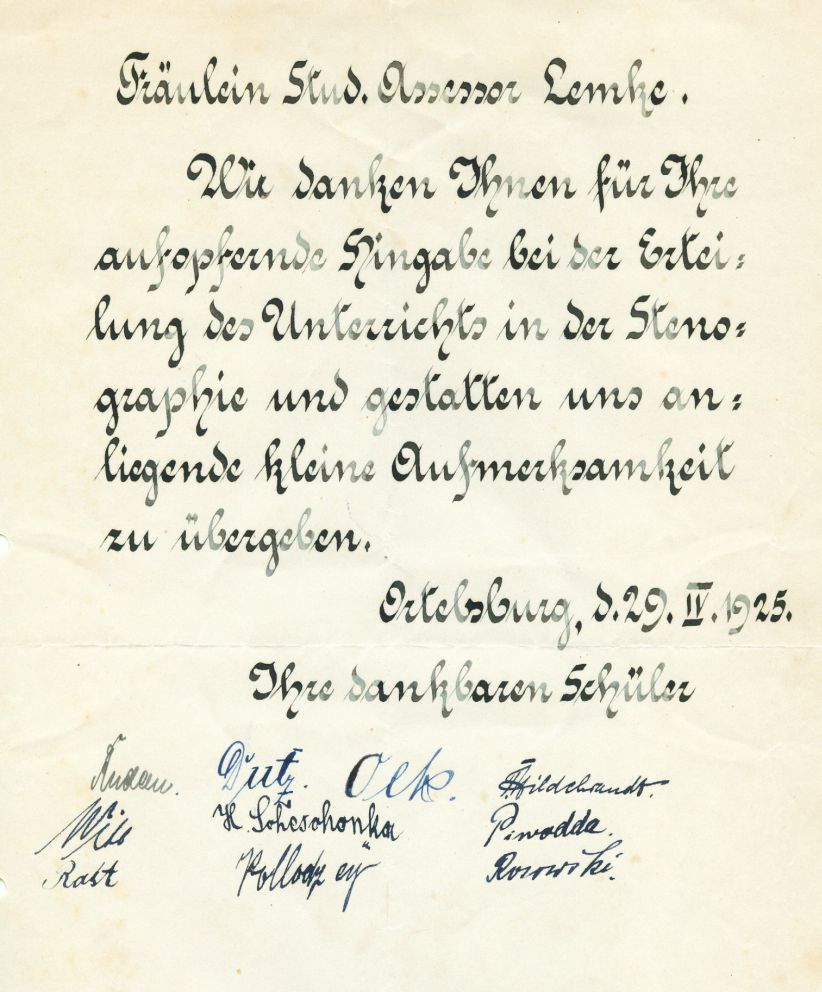 Fräulein Stud. Assessor Lemke.
Wir danken Ihnen für Ihre
aufopfernde Hingabe bei der Ertei-
lung des Unterrichts in der Steno-
graphie und gestatten uns an-
liegende kleine Aufmerksamkeit
zu übergeben.
Ortelsburg, d. 29. IV. 1925.
Ihre dankbaren Schüler
Dutz. Olk. Hildebrandt.
H. Piwodda.
Rast Rosowski.